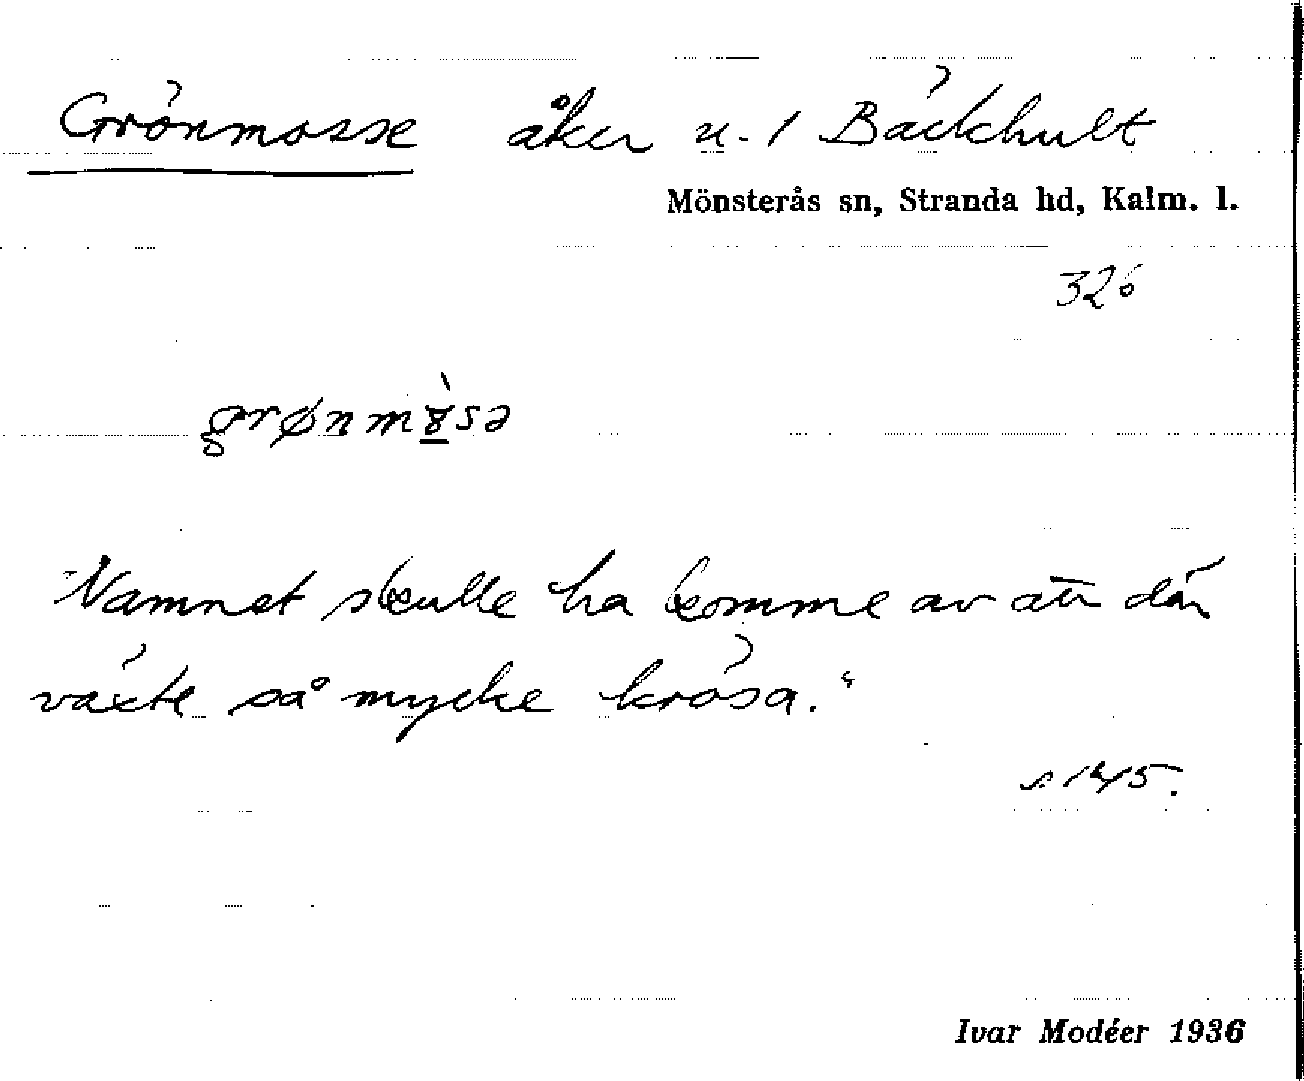 Grönmosse åker u. 1 Bäckhult
Mönsterås sn, Stranda hd, Kalm. l.
326
grønmɤ̀sə
"Namnet skulle ha komme av att där
växte så mycke krösa."
s 145.
Ivar Modéer 1936